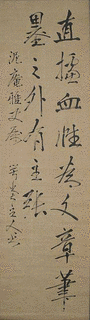 直攄血性為文章筆
墨之外有主張
泥庵雅史屬